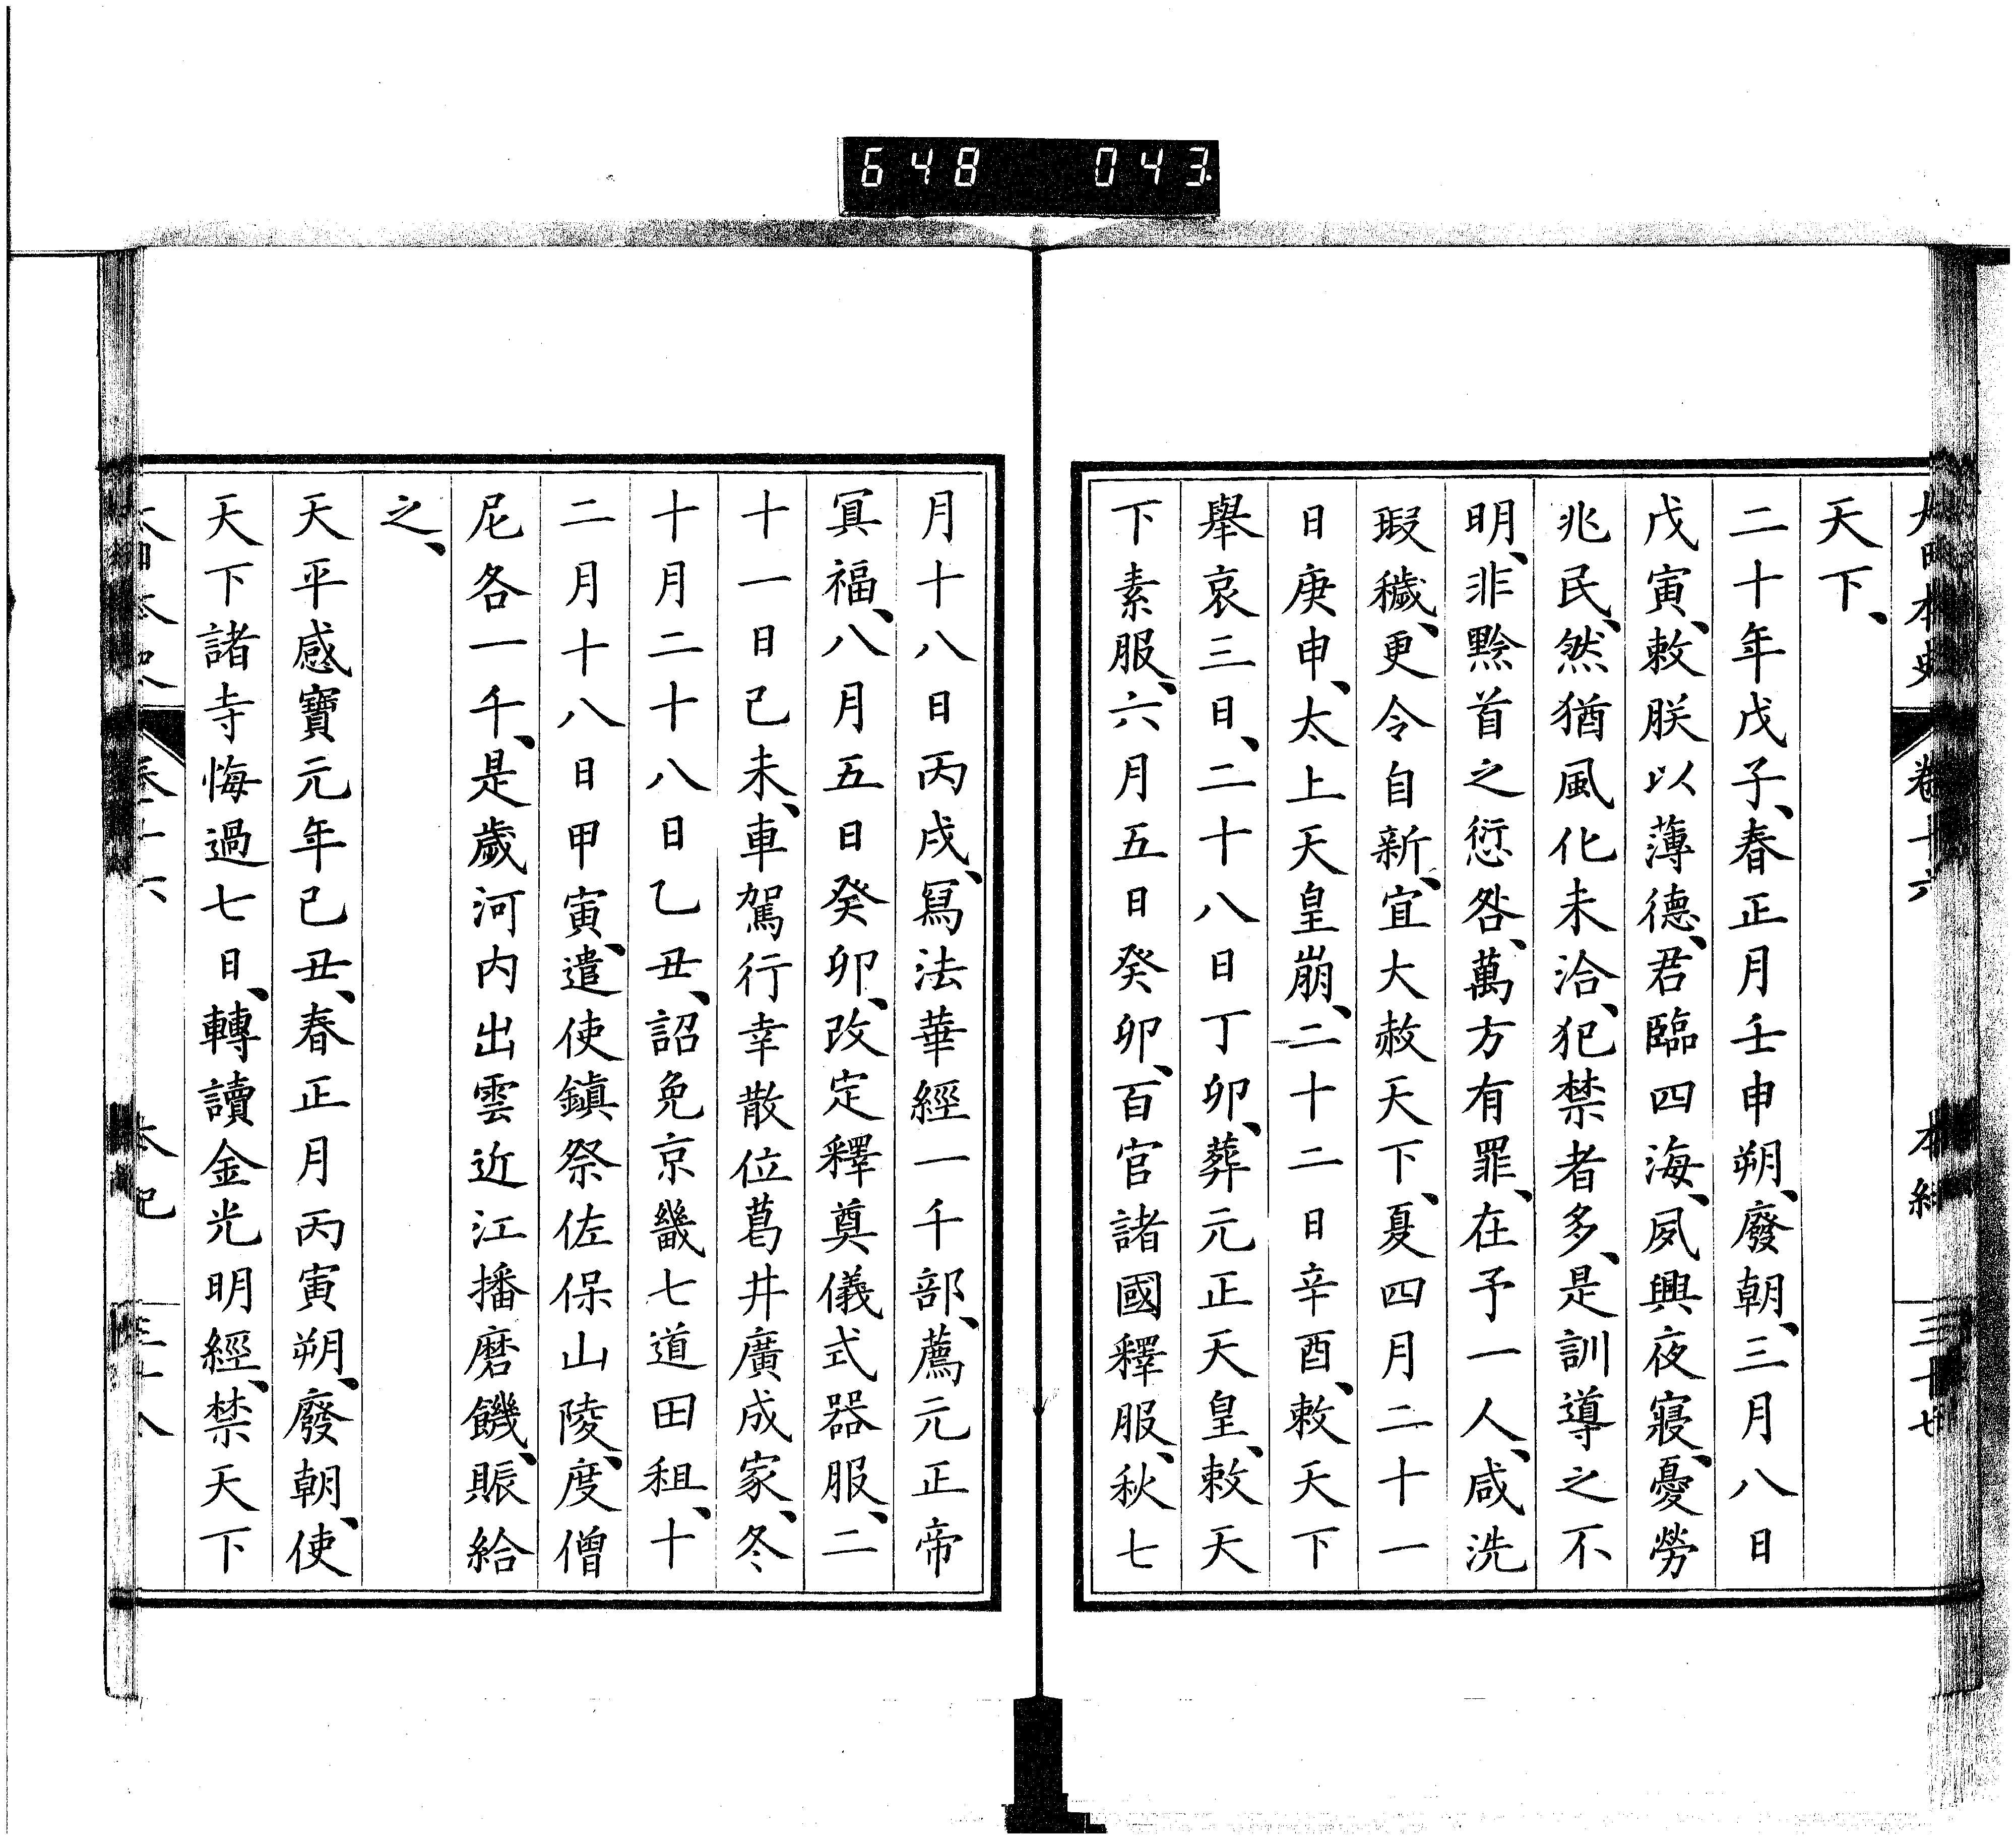 648 043
大日本史 卷十六 本紀 三十七
天下、
二十年戊子、春正月壬申朔、廢朝、三月八日
戊寅、敕朕以薄德、君臨四海、夙興夜寢、憂勞
兆民、然猶風化未洽、犯禁者多、是訓導之不
明、非黔首之愆咎、萬方有罪、在予一人、咸洗
瑕穢、更令自新、宜大赦天下、夏四月二十一
日庚申、太上天皇崩、二十二日辛酉、敕天下
舉哀三日、二十八日丁卯、葬元正天皇、敕天
下素服、六月五日癸卯、百官諸國釋服、秋七
月十八日丙戌、寫法華經一千部、薦元正帝
冥福、八月五日癸卯、改定釋奠儀式器服、二
十一日己未、車駕行幸散位葛井廣成家、冬
十月二十八日乙丑、詔免京畿七道田租、十
二月十八日甲寅、遣使鎭祭佐保山陵、度僧
尼各一千、是歲河內出雲近江播磨饑、賑給
之、
天平感寶元年己丑、春正月丙寅朔、廢朝、使
天下諸寺悔過七日、轉讀金光明經、禁天下
卷十六 本紀 三十八